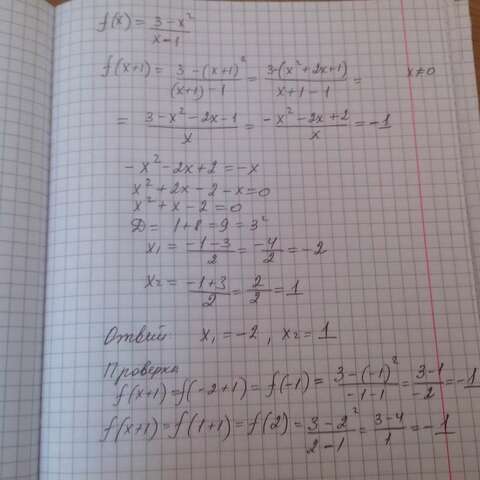 f(x) = (3 - x²)/(x - 1)
f(x+1) = (3 - (x+1)²)/((x+1) - 1) = (3 - (x² + 2x + 1))/(x + 1 - 1) = x ≠ 0
= (3 - x² - 2x - 1)/x = (-x² - 2x + 2)/x = -1
- x² - 2x + 2 = -x
x² + 2x - 2 - x = 0
x² + x - 2 = 0
D = 1 + 8 = 9 = 3²
x₁ = (-1 - 3)/2 = (-4)/2 = -2
x₂ = (-1 + 3)/2 = 2/2 = 1
Ответ x₁ = -2, x₂ = 1
Проверка
f(x+1) = f(-2+1) = f(-1) = (3 - (-1)²)/(-1 - 1) = (3 - 1)/(-2) = -1
f(x+1) = f(1+1) = f(2) = (3 - 2²)/(2 - 1) = (3 - 4)/1 = -1